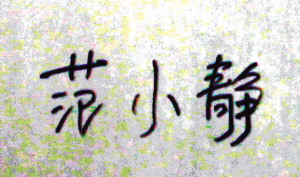 范小静